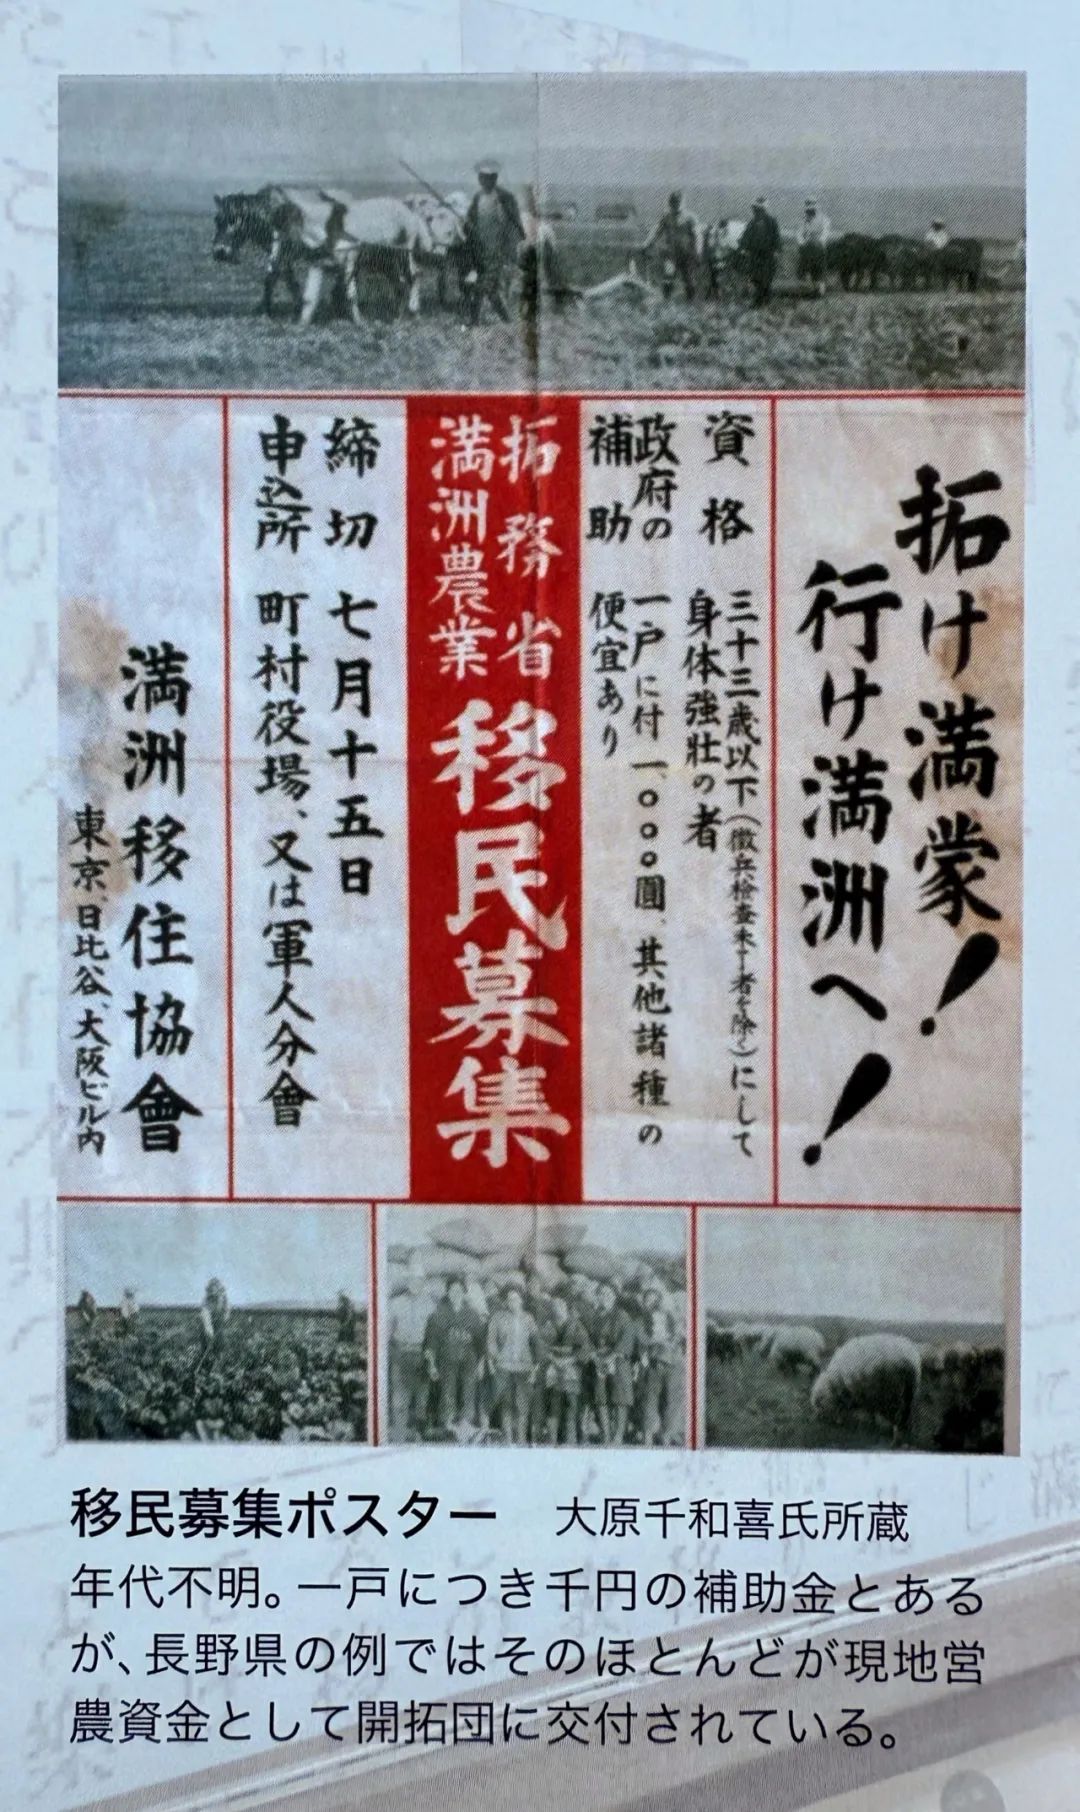 拓け満蒙!
行け満洲へ!
資格 三十三歳以下(徴兵検査未了者を除く)にして
身体強壮の者
政府の補助 一戸に付一、〇〇〇圓、其他諸種の
便宜あり
拓務省
満洲農業
移民募集
締切 七月十五日
申込所 町村役場、又は軍人分會
満洲移住協會
東京、日比谷、大阪ビル内
移民募集ポスター 大原千和喜氏所蔵
年代不明。一戸につき千円の補助金とある
が、長野県の例ではそのほとんどが現地営
農資金として開拓団に交付されている。